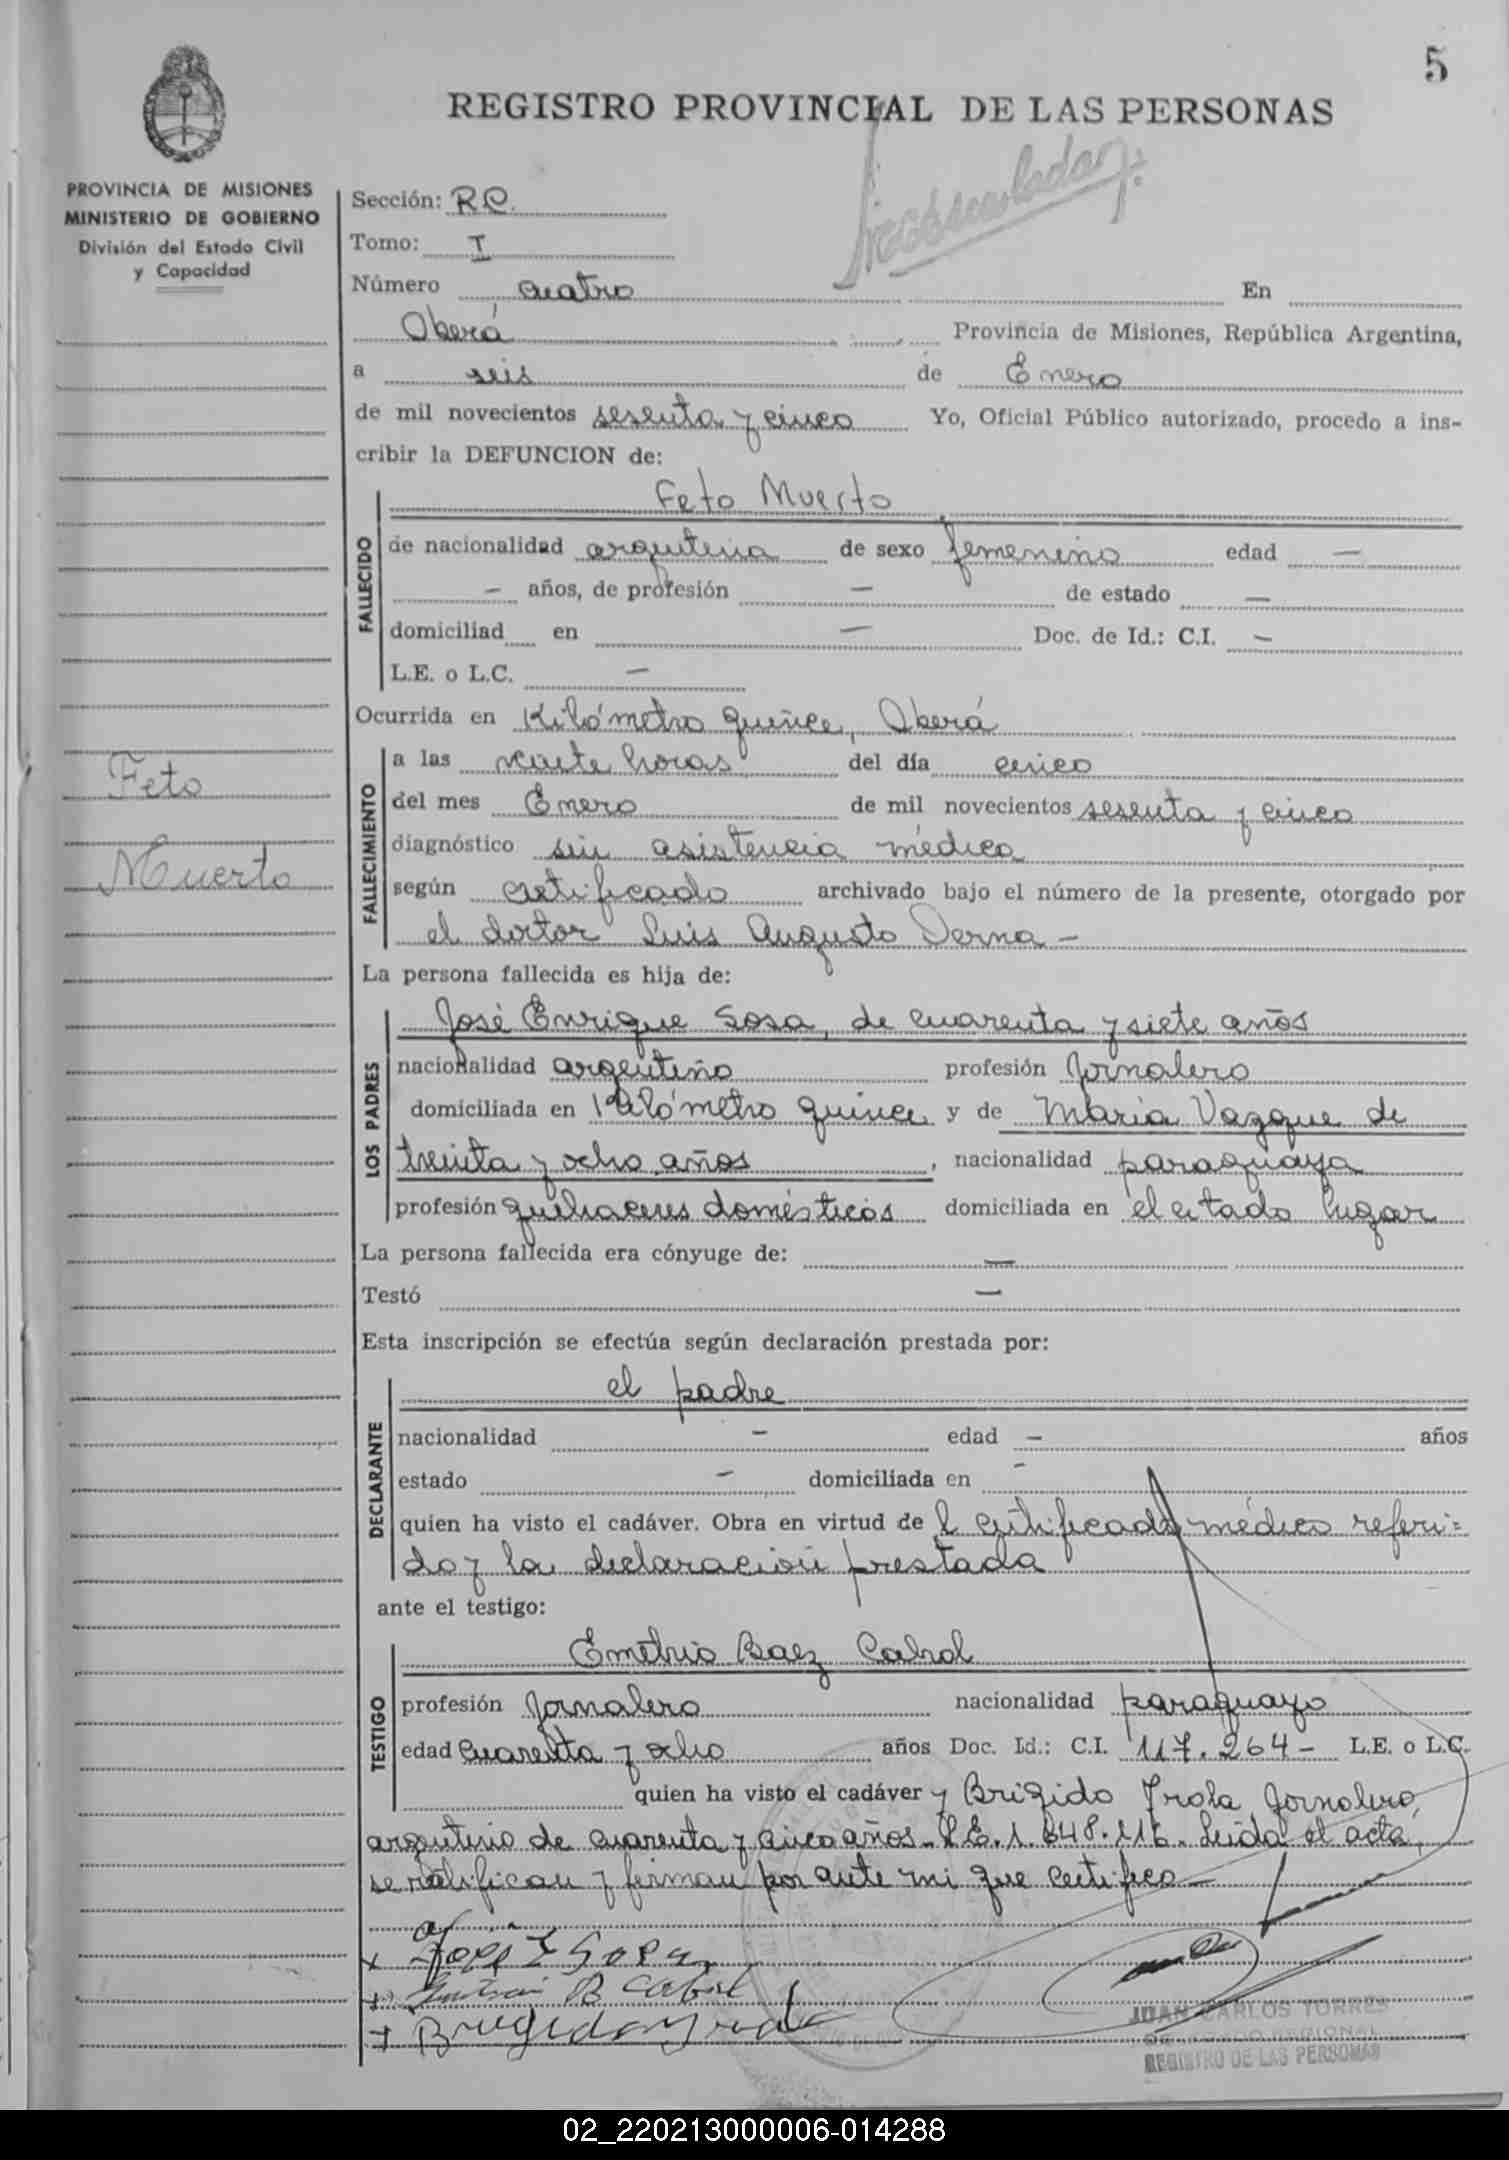 5
REGISTRO PROVINCIAL DE LAS PERSONAS
PROVINCIA DE MISIONES
MINISTERIO DE GOBIERNO
División del Estado Civil
y Capacidad
Sección: R.C.
Tomo: I
Número cuatro En
Oberá Provincia de Misiones, República Argentina,
a seis de Enero
de mil novecientos sesenta y cinco Yo, Oficial Público autorizado, procedo a ins-
cribir la DEFUNCION de:
Feto Muerto
FALLECIDO
de nacionalidad argentina de sexo femenino edad —
— años, de profesión — de estado —
domiciliad en — Doc. de Id.: C.I. —
L.E. o L.C. —
Ocurrida en Kilómetro quince, Oberá
Feto
Muerto
FALLECIMIENTO
a las veinte horas del día cinco
del mes Enero de mil novecientos sesenta y cinco
diagnóstico sin asistencia médica
según certificado archivado bajo el número de la presente, otorgado por
el doctor Luis Augusto Derna —
La persona fallecida es hija de:
LOS PADRES
José Enrique Sosa, de cuarenta y siete años
nacionalidad argentino profesión Jornalero
domiciliada en Kilómetro quince y de María Vazque de
treinta y ocho años, nacionalidad paraguaya
profesión quehaceres domésticos domiciliada en el citado lugar
La persona fallecida era cónyuge de: —
Testó —
Esta inscripción se efectúa según declaración prestada por:
DECLARANTE
el padre
nacionalidad — edad — años
estado — domiciliada en —
quien ha visto el cadáver. Obra en virtud de l certificado médico referi=
do y la declaración prestada
ante el testigo:
TESTIGO
Emetrio Baez Cabral
profesión Jornalero nacionalidad paraguayo
edad cuarenta y ocho años Doc. Id.: C.I. 117.264 — L.E. o L.C.
quien ha visto el cadáver y Brígido Irala Jornalero,
argentino de cuarenta y cinco años. L.E. 1.848.116. Leída el acta,
se ratifican y firman por ante mi que certifico —
x José E Sosa
x B Cabral
x Brigido Yrala
JUAN CARLOS TORRES
REGIONAL
REGISTRO DE LAS PERSONAS
02_220213000006-014288